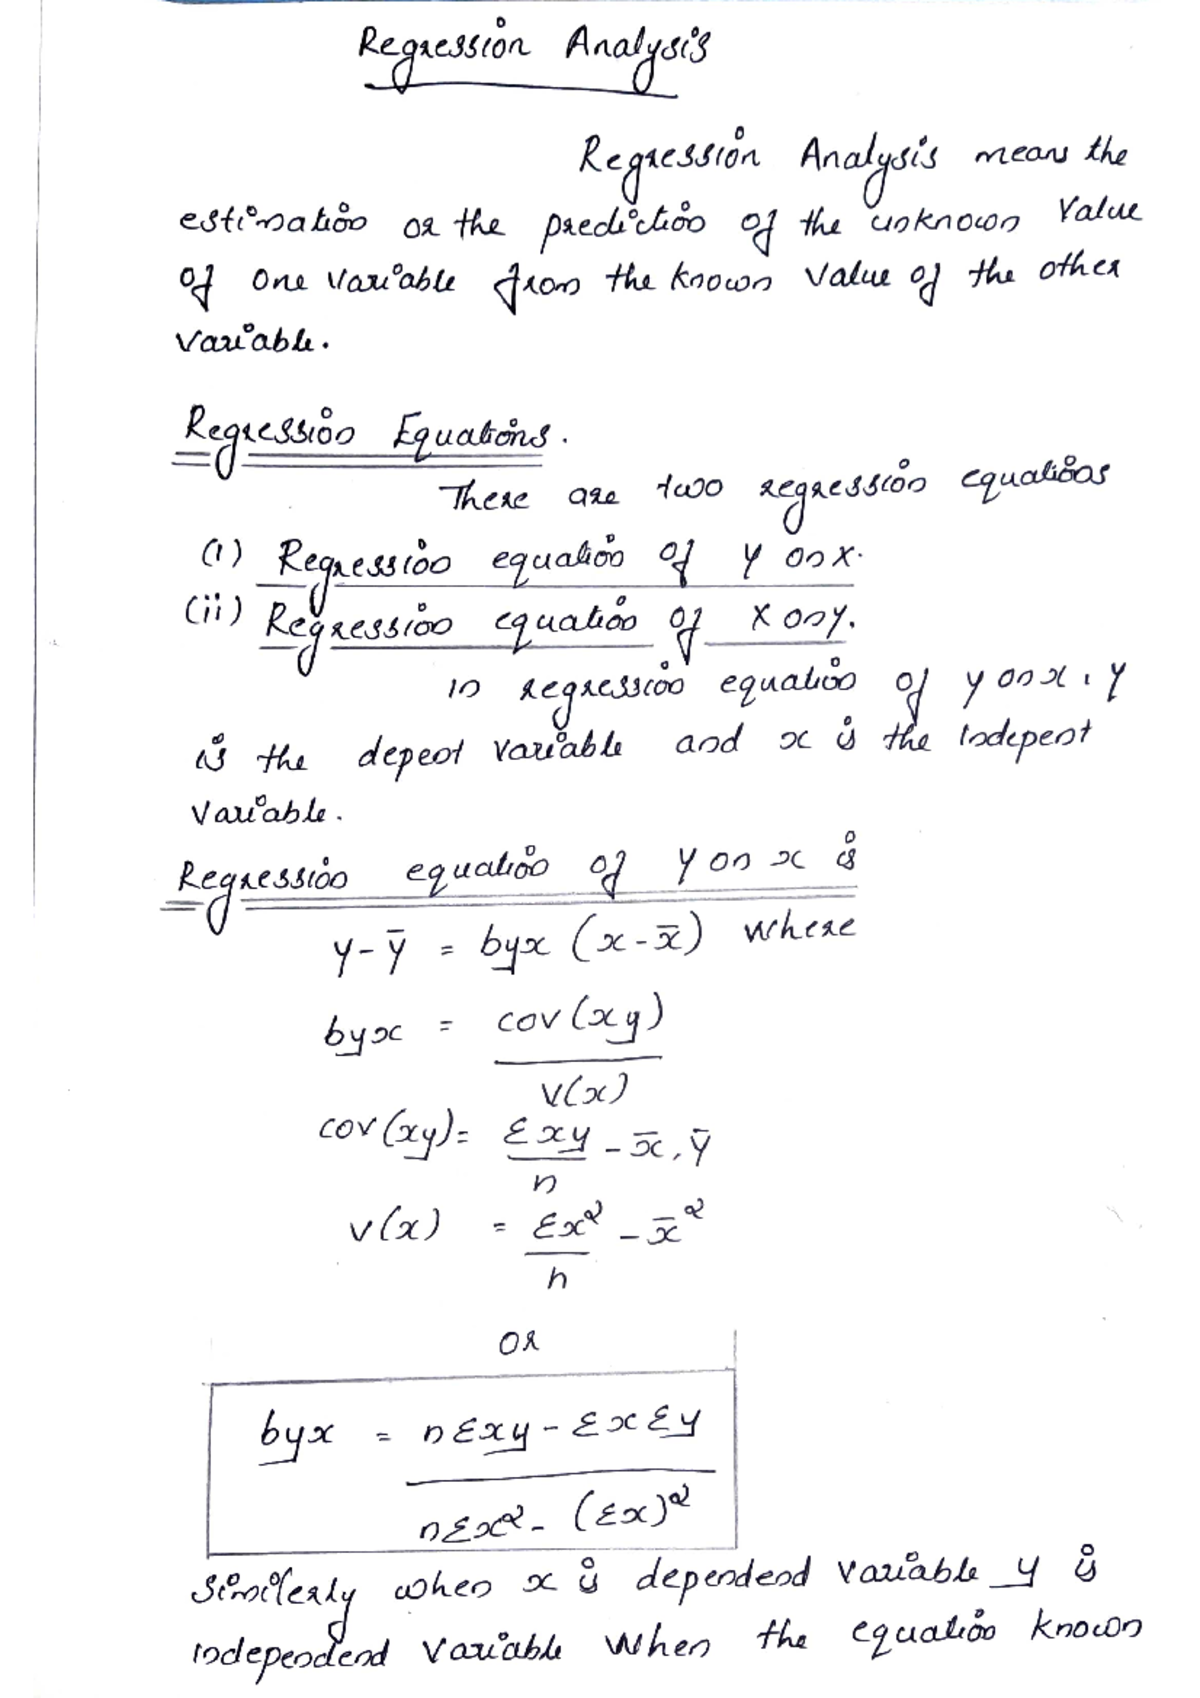 Regression Analysis
Regression Analysis means the
estimation or the prediction of the unknown Value
of one variable from the known value of the other
variable.
Regression Equations.
There are two regression equations
(i) Regression equation of Y on X.
(ii) Regression equation of X on y.
in regression equation of y on x, y
is the depent variable and x is the Indepent
variable.
Regression equation of y on x is
y - ȳ = byx (x - x̄) where
byx = cov(xy)
V(x)
cov(xy) = Σxy - x̄.ȳ
n
v(x) = Σx² - x̄²
n
or
byx = nΣxy - ΣxΣy
nΣx² - (Σx)²
Similerly when x is dependend variable y is
independend variable when the equation known